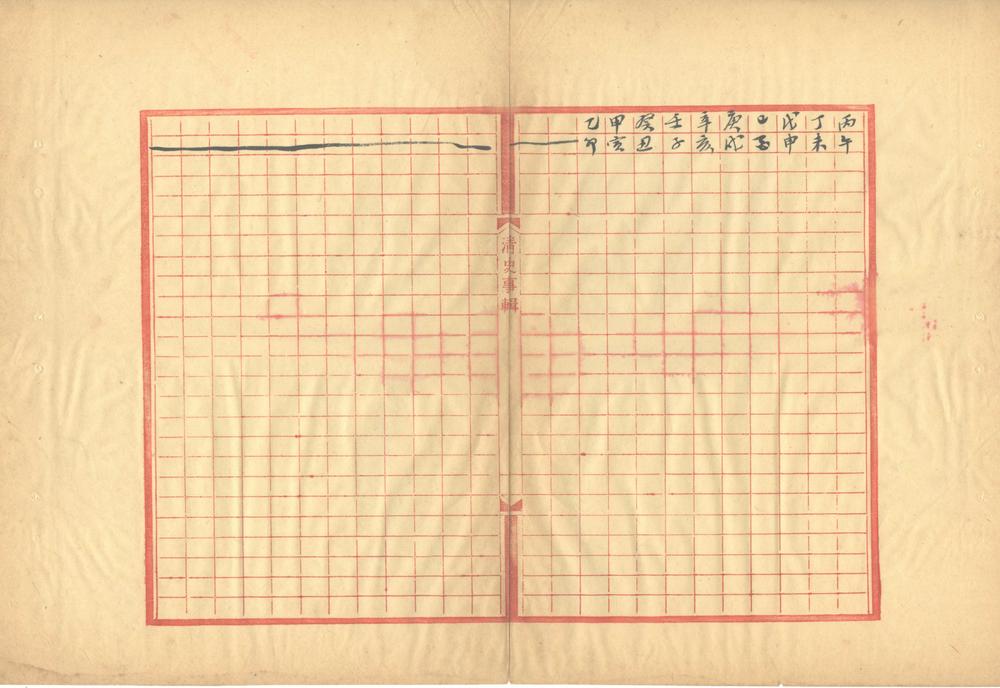 丙午
丁未
戊申
己酉
庚戌
辛亥
壬子
癸丑
甲寅
乙卯
清史事輯